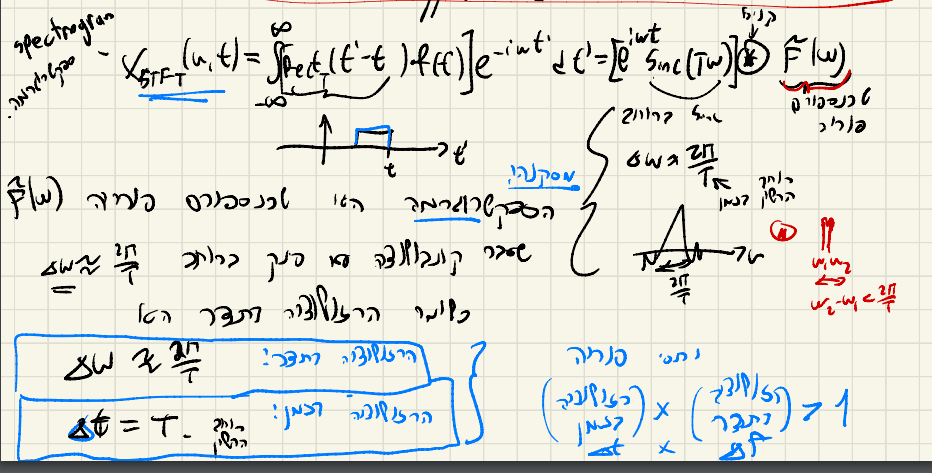 spectrogram
ספקטרוגרמה.
קונב'
X_STFT(ω,t) = ∫_{-∞}^{∞} [Rect_T(t'-t) f(t')] e^{-iωt'} dt' = [e^{iωt} Sinc(Tω)] ⊛ F̃(ω)
טרנספורם
פוריה
sinc ברוחב
Δω ≈ 2π/T
רוחב
החלון בזמן
t
t'
מסקנה:
הספקטרוגרמה היא טרנספורם פוריה F̃(ω)
שעבר קונבולוציה עם סינק ברוחב Δω ≈ 2π/T
כלומר הרזולוציה בתדר היא
ω
2π/T
*
ω₁ ω₂
ω₂-ω₁ < 2π/T
הרזולוציה בתדר: Δω ≈ 2π/T
הרזולוציה בזמן: Δt = T -
רוחב
החלון
יחסי פוריה
(רזולוציה בזמן) x (רזולוציה בתדר) > 1
Δt x Δf